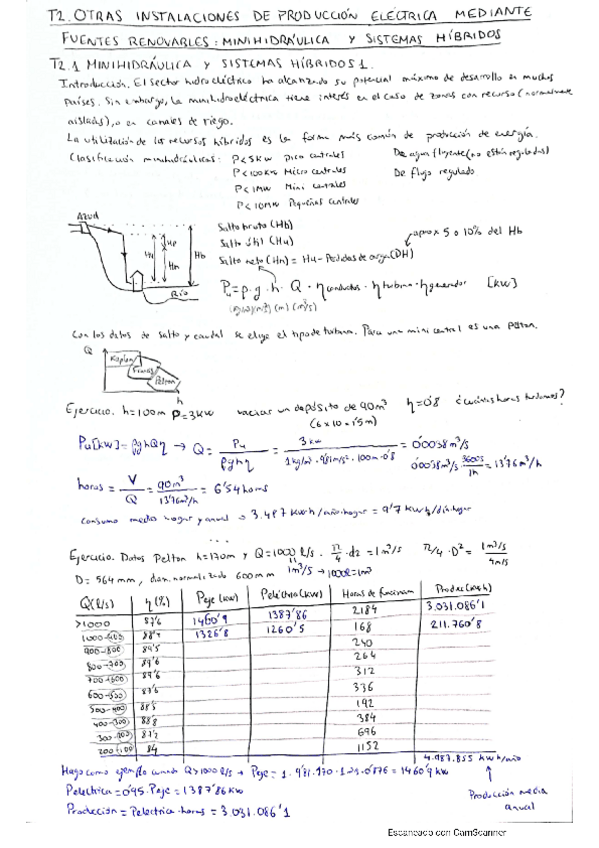 T2. OTRAS INSTALACIONES DE PRODUCCIÓN ELÉCTRICA MEDIANTE
FUENTES RENOVABLES: MINIHIDRÁULICA Y SISTEMAS HÍBRIDOS
T2.1 MINIHIDRÁULICA Y SISTEMAS HÍBRIDOS 1.
Introducción. El sector hidroeléctrico ha alcanzado su potencial máximo de desarrollo en muchos
países. Sin embargo, la minihidroeléctrica tiene interés en el caso de zonas con recurso (normalmente
aisladas), o en canales de riego.
La utilización de los recursos híbridos es la forma más común de producción de energía.
Clasificación minihidráulicas: P<5kW pico centrales De agua fluyente (no están reguladas)
P<100kW Micro centrales De flujo regulado
P<1MW Mini centrales
P<10MW Pequeñas centrales
Azud
Hu
Hn
Hb
Río
Salto bruto (Hb)
Salto útil (Hu)
aprox 5 o 10% del Hb
Salto neto (Hn) = Hu - Pérdidas de carga (DH)
Pu = ρ · g · h · Q · η conductos · η turbina · η generador [kW]
(m) (m³/s)
Con los datos de salto y caudal se elige el tipo de turbina. Para una mini central es una Pelton.
Q
Kaplan
Francis
Pelton
h
Ejercicio. h=100m P=3kW vaciar un depósito de 90m³ η=0'8 ¿cuántas horas tardamos?
(6x10x1'5m)
Pu[kW] = ρghQη → Q = Pu / ρghη = 3kW / 1kg/m³ · 9'81m/s² · 100m · 0'8 = 0'0038m³/s
0'0038m³/s · 3600s / 1h = 13'76m³/h
horas = V / Q = 90m³ / 13'76m³/h = 6'54 horas
Consumo medio hogar y anual = 3.487 kWh/año·hogar = 9'7 kWh/día·hogar
...
Ejercicio. Datos Pelton h=170m y Q=1000 l/s · π/4 · d2 = 1m³/s π/4 · D² = 1m³/s / 4m/s
D= 564mm, diam. normalizado 600mm 1m³/s → 1000l=1m³
Q(l/s) η(%) Peje(kW) Peléctrica(kW) Horas de funcionam Produc(kWh)
>1000 87'6 1460'9 1387'86 2184 3.031.086'1
1000-900 88'4 1326'8 1260'5 168 211.760'8
900-800 89'5 240
800-700 89'6 264
700-600 89'6 312
600-500 87'6 336
500-400 88'5 192
400-300 88'8 384
300-200 87'2 696
200-100 84 1152
4.987.855 kWh/año
Hago como ejemplo cuando Q>1000 l/s → Peje = 1 · 9'81 · 170 · 1 · 0'876 = 1460'9 kW
Peléctrica = 0'95 · Peje = 1387'86kW
Producción media
anual
Producción = Peléctrica · horas = 3.031.086'1
Escaneado con CamScanner